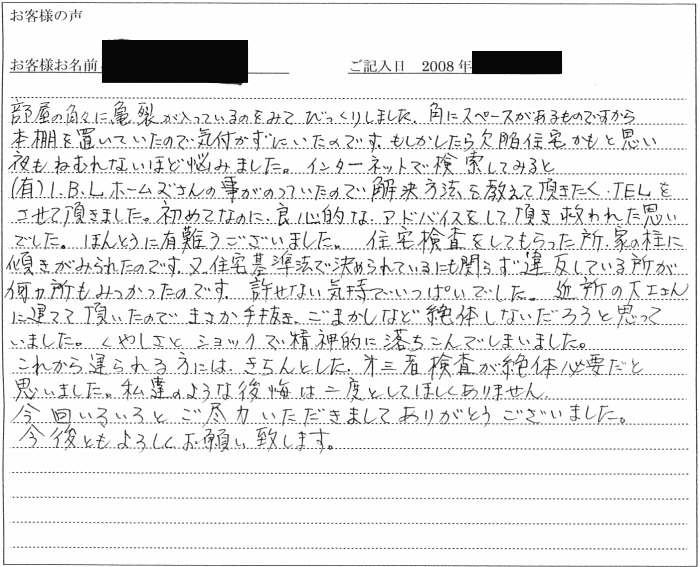 お客様の声
お客様お名前 ご記入日 2008年
部屋の角々に亀裂が入っているのをみて びっくりしました。角にスペースがあるものですから
本棚を置いていたので気付かずにいたのです。もしかしたら欠陥住宅かもと思い
夜もねむれないほど悩みました。インターネットで検索してみると
(有)I.B.L.ホームズさんの事がのっていたので解決方法を教えて頂きたく、TELを
させて頂きました。初めてなのに、良心的な、アドバイスをして頂き救われた思い
でした。ほんとうに有難うございました。住宅検査をしてもらった所、家の柱に
傾きがみられたのです。又、住宅基準法で決められているにも関らず違反している所が
何カ所もみつかったのです。許せない気持でいっぱいでした。近所の大工さん
に建てて頂いたので まさか手抜き、ごまかしなど絶体しないだろうと思って
いました。くやしさとショックで精神的に落ちこんでしまいました。
これから建られる方には、きちんとした、第三者検査が絶体必要だと
思いました。私達のような後悔は二度としてほしくありません。
今回いろいろと ご尽力いただきまして ありがとうございました。
今後ともよろしくお願い致します。